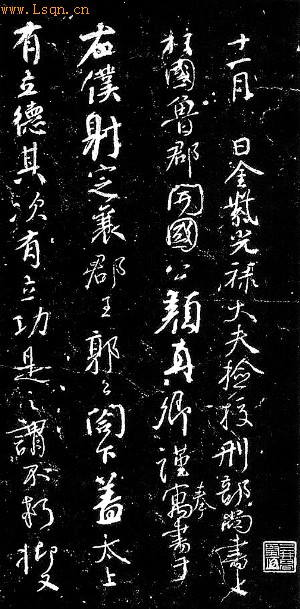 www.Lsqn.cn
十一月日金紫光禄大夫检校刑部尚書上
柱國魯郡開國公顔真卿謹奉寓書于
右僕射定襄郡王郭公閤下蓋太上
有立德其次有立功是之謂不朽抑又